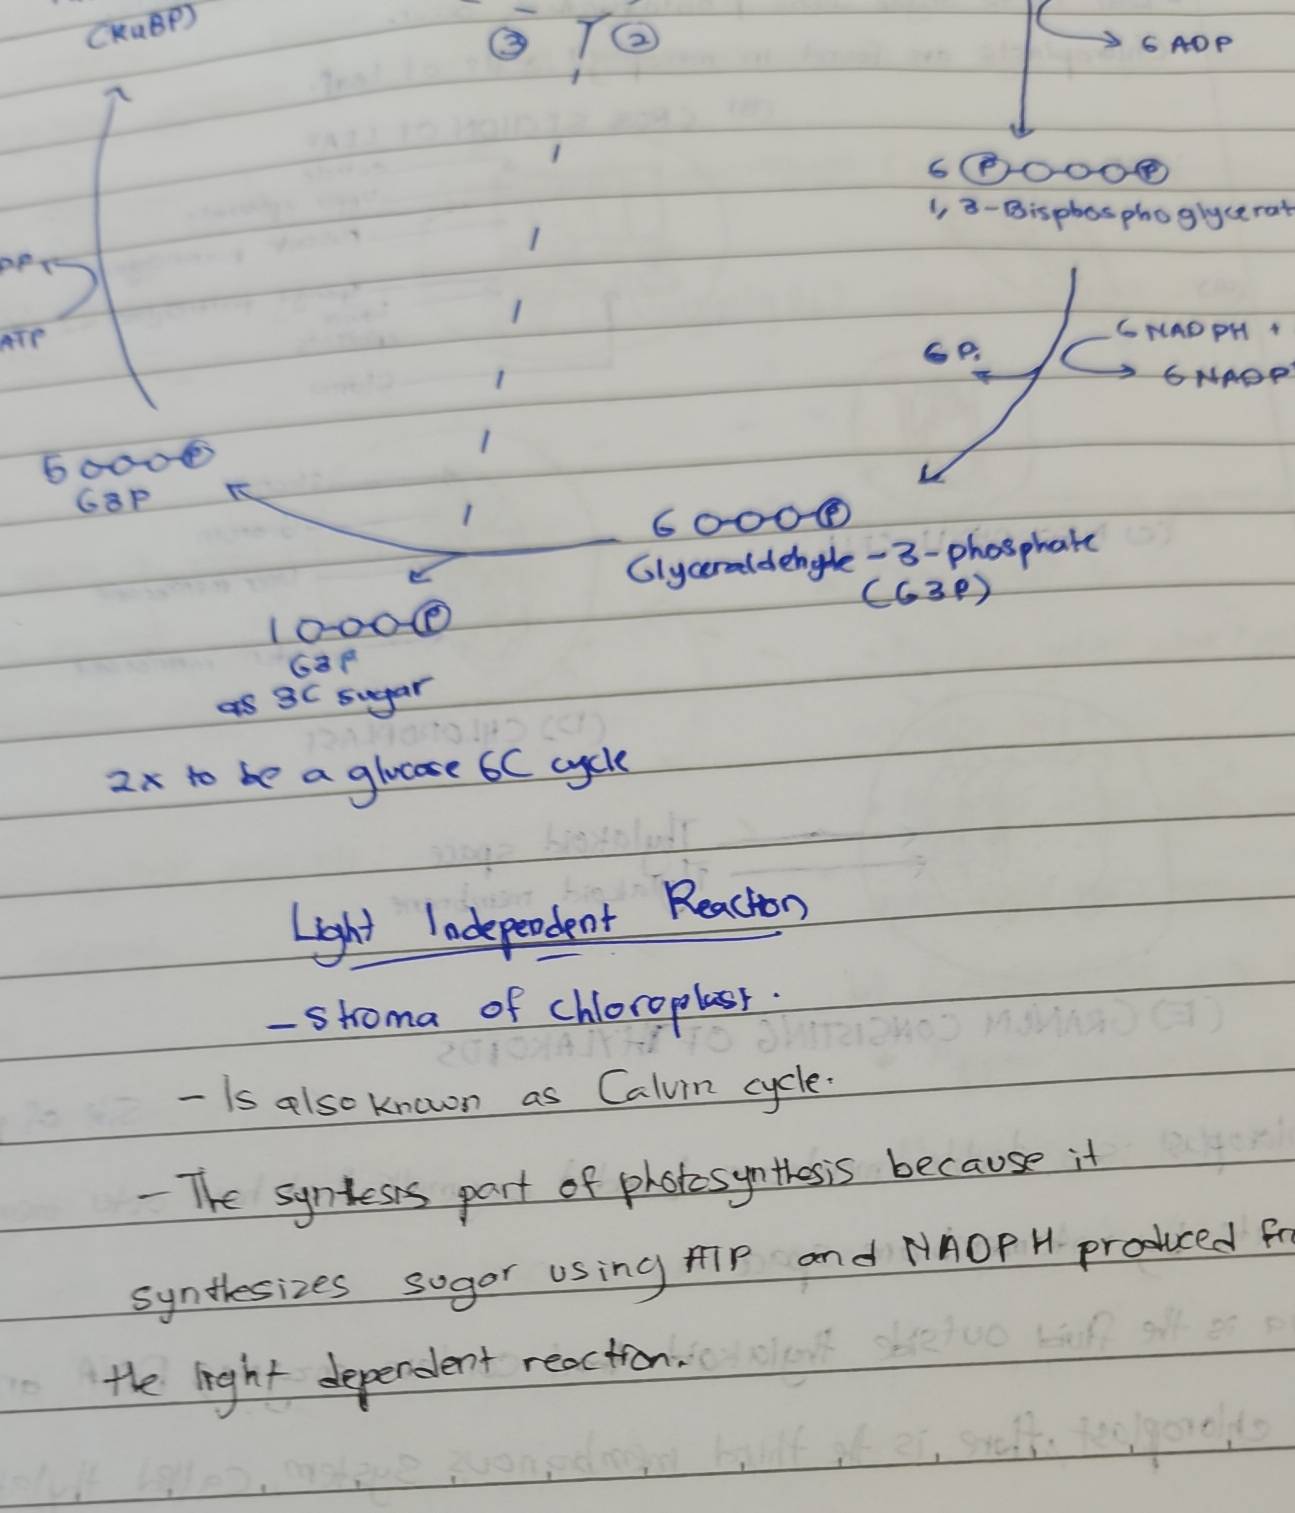 (RuBP)
③ ②
6 ADP
6 ⓅOOOⓅ
1, 3-Bisphosphoglycerat
ATP
6 NADPH +
6 Pi
6 NADP+
5 OOOⓅ
G3P
6 OOOⓅ
Glyceraldehyde-3-phosphate
(G3P)
1 OOOⓅ
G3P
as 3C sugar
2x to be a glucose 6C cycle
Light Independent Reaction
- stroma of chloroplast.
- Is also known as Calvin cycle.
- The syntesis part of photosynthesis because it
synthesizes sugar using ATP and NADPH produced fro
the light dependent reaction.